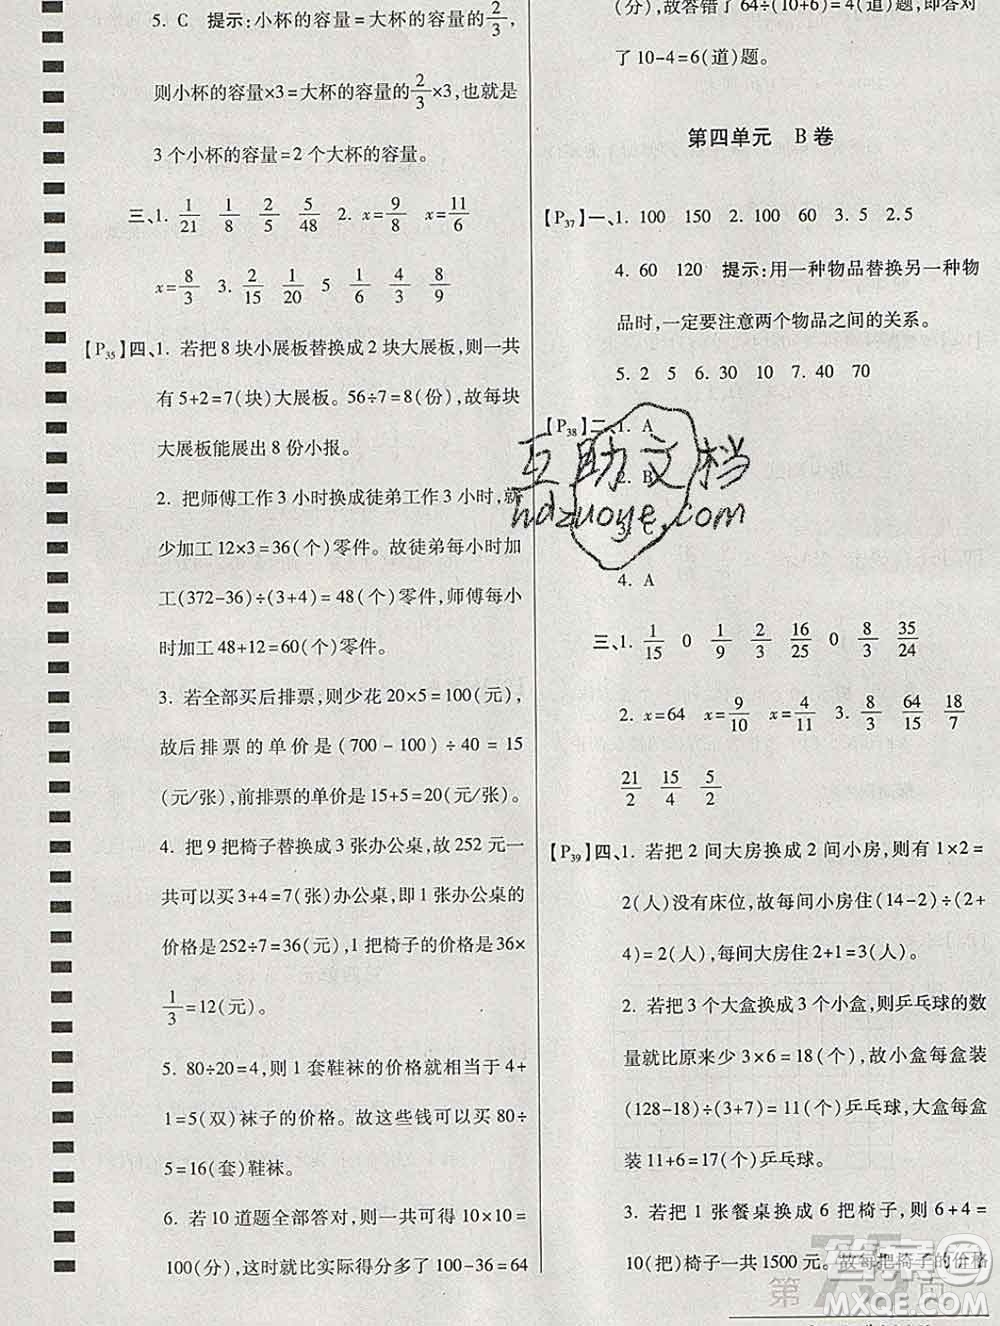 5. C 提示:小杯的容量=大杯的容量的2/3,
则小杯的容量×3=大杯的容量的2/3×3,也就是
3个小杯的容量=2个大杯的容量。
三、1. 1/21 1/8 2/5 5/48 2. x=9/8 x=11/6
x=8/3 3. 2/15 1/20 5 1/6 4/9
【P35】四、1. 若把8块小展板替换成2块大展板,则一共
有5+2=7(块)大展板。56÷7=8(份),故每块
大展板能展出8份小报。
2. 把师傅工作3小时换成徒弟工作3小时,就
少加工12×3=36(个)零件。故徒弟每小时加
工(372-36)÷(3+4)=48(个)零件,师傅每小
时加工48+12=60(个)零件。
3. 若全部买后排票,则少花20×5=100(元),
故后排票的单价是(700-100)÷40=15
(元/张),前排票的单价是15+5=20(元/张)。
4. 把9把椅子替换成3张办公桌,故252元一
共可以买3+4=7(张)办公桌,即1张办公桌的
价格是252÷7=36(元),1把椅子的价格是36×
1/3=12(元)。
5. 80÷20=4,则1套鞋袜的价格就相当于4+
1=5(双)袜子的价格。故这些钱可以买80÷
5=16(套)鞋袜。
6. 若10道题全部答对,则一共可得10×10=
100(分),这时就比实际得分多了100-36=64
(分),故答错了64÷(10+6)=4(道)题,即答对
了10-4=6(道)题。
第四单元 B卷
【P37】一、1. 100 150 2. 100 60 3. 5 2.5
4. 60 120 提示:用一种物品替换另一种物
品时,一定要注意两个物品之间的关系。
5. 2 5 6. 30 10 7. 40 70
【P38】二、1. A
2. B
3.
4. A
三、1. 1/15 0 1/9 2/3 16/25 0 8/3 35/24
2. x=64 x=9/10 x=4/11 3. 8/3 64/15 18/7
21/2 15/4 5/2
【P39】四、1. 若把2间大房换成2间小房,则有1×2=
2(人)没有床位,故每间小房住(14-2)÷(2+
4)=2(人),每间大房住2+1=3(人)。
2. 若把3个大盒换成3个小盒,则乒乓球的数
量就比原来少3×6=18(个),故小盒每盒装
(128-18)÷(3+7)=11(个)乒乓球,大盒每盒
装11+6=17(个)乒乓球。
3. 若把1张餐桌换成6把椅子,则6+4=
10(把)椅子一共1500元。故每把椅子的价格
互助文档
hdzuoye.com
答案圈
MXQE.COM